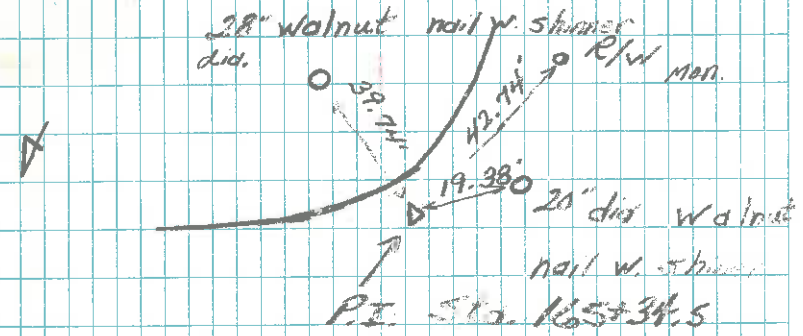 28" walnut nail w. shinner
dia.
R/W Mon.
39.74'
42.74'
19.38'
20" dia walnut
nail w.
P.I. Sta. 165+34.5